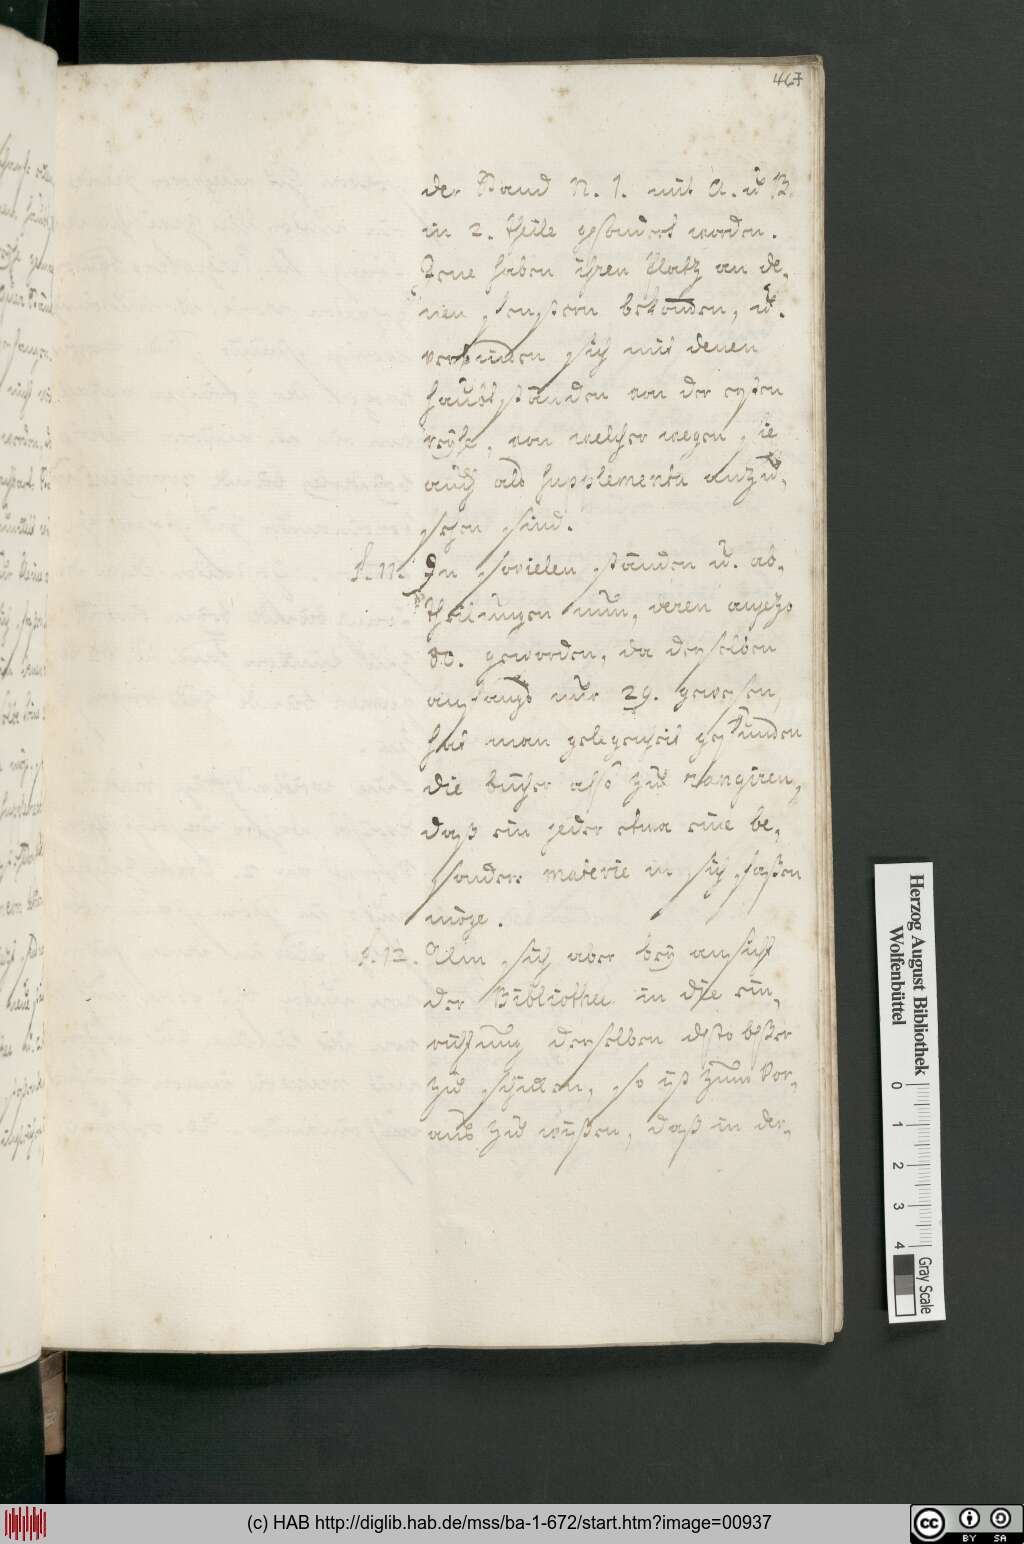 467
der Stand N. 1. mit A. u B.
in 2. theile gesondert worden.
Jene haben ihren Platz an de,
nen fenstern bekom̄en, u.
verbinden sich mit denen
haubtständen von der ersten
reyhe, von welcher wegen sie
auch als supplementa anzu,
sehen sind.
§. 11. In sovielen ständen u. ab,
theilungen nun, deren anjezo
80. geworden, da derselben
anfangs nur 29. gewesen,
hat man gelegenheit gefunden
die bücher also zu rangiren,
daß ein jeder etwa eine be,
sondere materie in sich faßen
möge.
§. 12. Um sich aber bey ansicht
der Bibliothec in die ein,
richtung derselben desto beßer
zu schicken, so ist zum vor,
aus zu wißen, daß in der,
Herzog August Bibliothek
Wolfenbüttel
0 1 2 3 4
Gray Scale
(c) HAB http://diglib.hab.de/mss/ba-1-672/start.htm?image=00937
cc BY SA